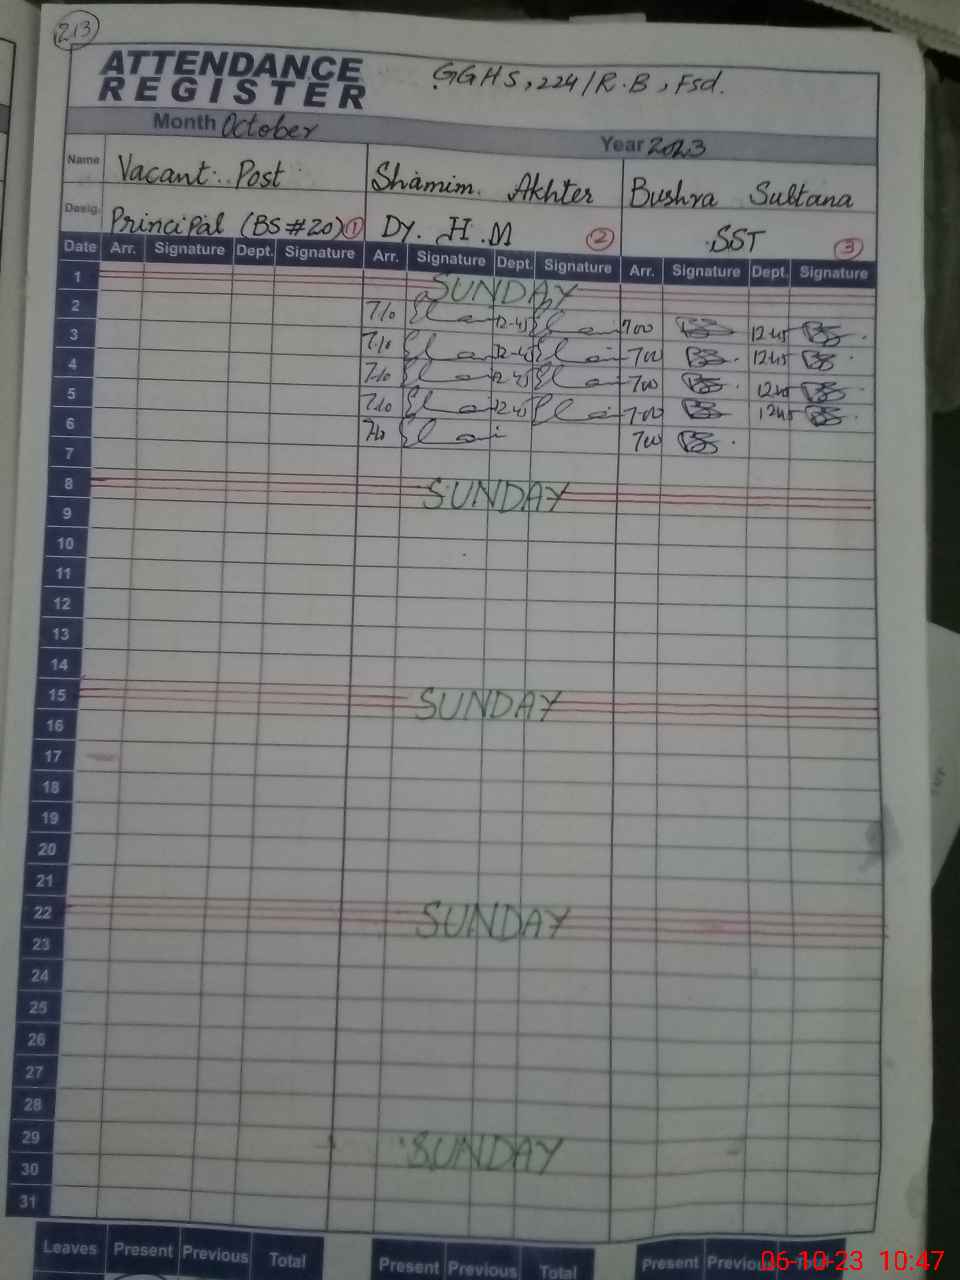 213
ATTENDANCE REGISTER
GGHS, 224/R.B, Fsd.
Month October Year 2023
Name Vacant Post Shamim Akhter Bushra Sultana
Desig. Principal (BS #20) 1 Dy. H.M 2 SST 3
Date Arr. Signature Dept. Signature Arr. Signature Dept. Signature Arr. Signature Dept. Signature
1 SUNDAY
2 7/0 12-45 700 1245
3 7/0 12-45 700 1245
4 7/0 12-45 700 1245
5 7/0 12-45 700 1245
6 7/0 700
7
8 SUNDAY
9
10
11
12
13
14
15 SUNDAY
16
17
18
19
20
21
22 SUNDAY
23
24
25
26
27
28
29 SUNDAY
30
31
Leaves Present Previous Total Present Previous Total Present Previous
06-10-23 10:47